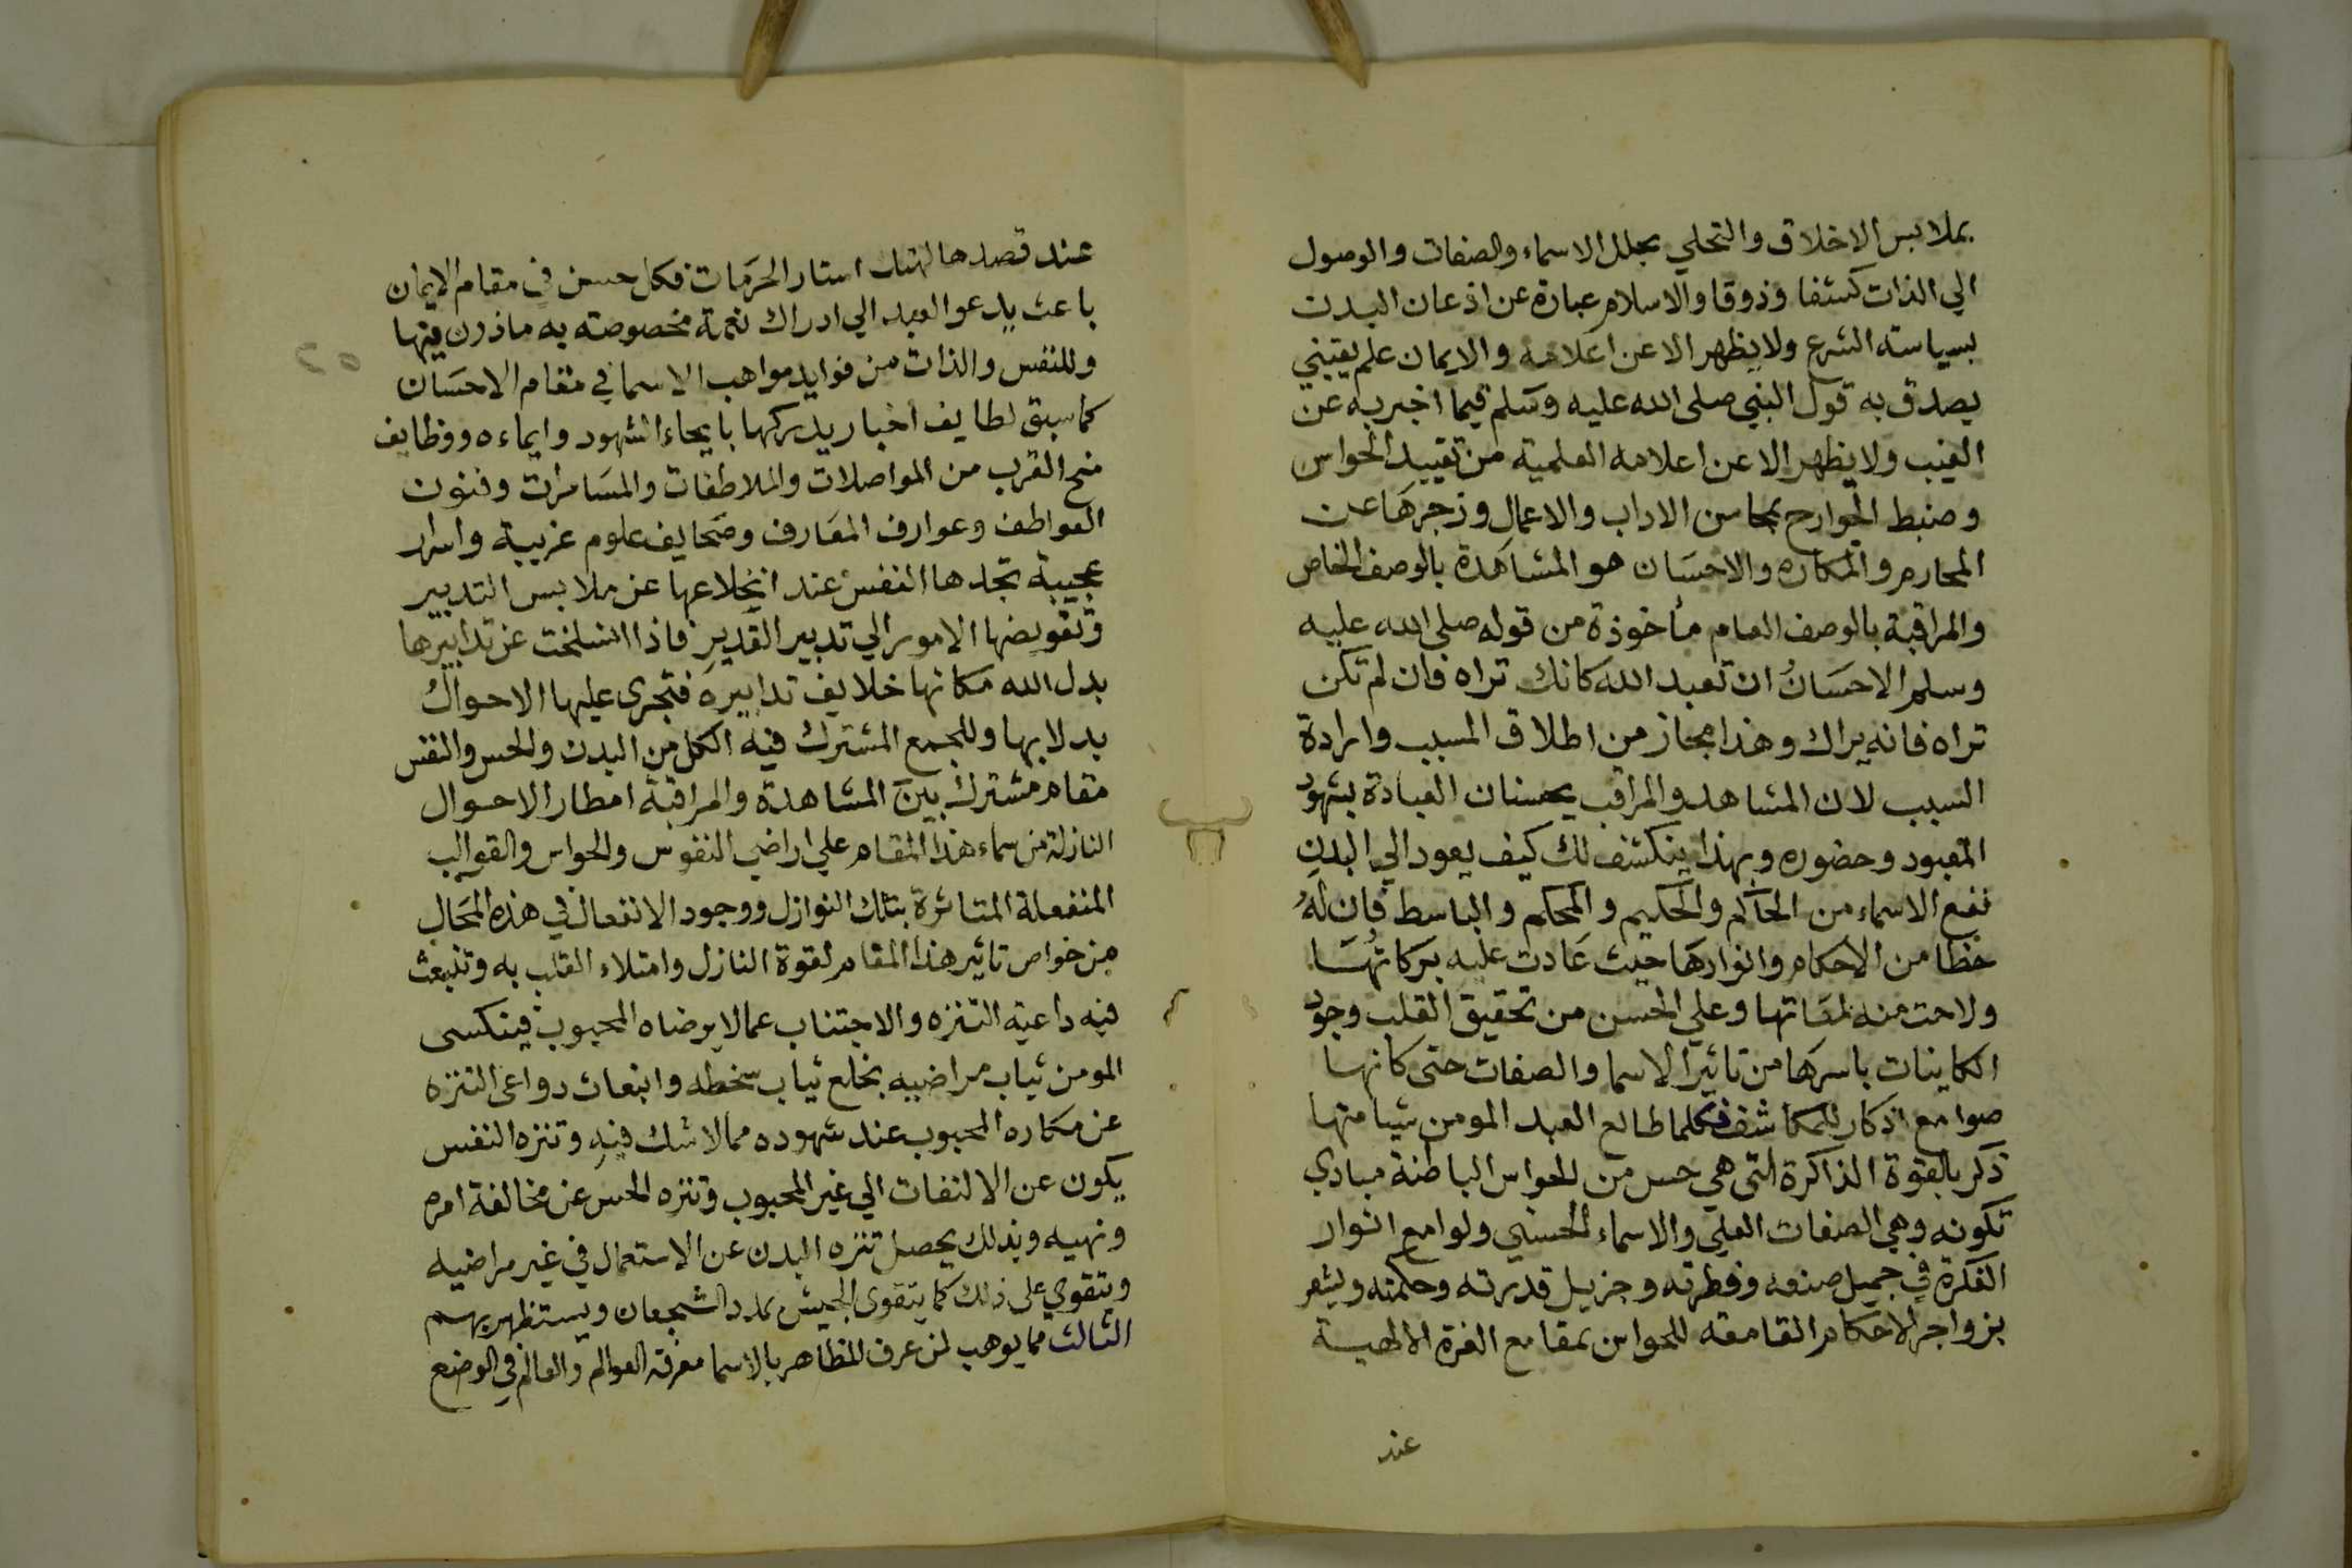 بملابس الاخلاق والتحلي بحلل الاسماء والصفات والوصول
الي الذات كشفا وذوقا والاسلام عبارة عن اذعان البدن
بسياسة الشرع ولا يظهر الا عن اعلامه والايمان علم يقيني
يصدق به قول النبي صلى الله عليه وسلم فيما اخبر به عن
الغيب ولا يظهر الا عن اعلامه العلمية من تقييد الحواس
وضبط الجوارح بمحاسن الاداب والاعمال وزجرها عن
المحارم والمكاره والاحسان هو المشاهدة بالوصف الخاص
والمراقبة بالوصف العام مأخوذة من قوله صلى الله عليه
وسلم الاحسانُ ان تعبد الله كانك تراه فان لم تكن
تراه فانه يراك وهذا مجاز من اطلاق المسبب وارادة
السبب لان المشاهد والمراقب يحسنان العبادة بشهود
المعبود وحضوره وبهذا ينكشف لك كيف يعود الي البدن
نفع الاسماء من الحاكم والحكيم والمحكم والباسط فان لهُ
حظا من الاحكام وانوارها حيث عادت عليه بركاتُها
ولاحت منه لمقاتها وعلي الحسن من تحقيق القلب وجود
الكاينات باسرها من تاثير الاسما والصفات حتى كانها
صوامع اذكار للمكاشف فكلما طالع العبد المومن شيا منها
ذكر بالقوة الذاكرة التي هي حس من الحواس الباطنة مبادي
تكونه وهي الصفات العلي والاسماء الحسني ولوامع انوار
الفكرة في جميل صنعه وفطرته وجزيل قدرته وحكمته ويشعر
بزواجر الاحكام القامعه للحواس بمقامع الغرة الالهية
عند
عند قصدها لهتك استار الحرَمات فكل حسن في مقام الايمان
باعث يدعو العبد الي ادراك نعمة مخصوصته به ماذون فيها
وللنفس والذات من فوايد مواهب الاسما في مقام الاحسَان
كما سبق لطايف اخبار يدركها بايحاء الشهود وايماءه ووظايف
منح القرب من المواصلات والملاطفات والمسَامرات وفنون
العواطف وعوارف المعَارف وصحَايف علوم غريبة واسرار
عجيبة تجدها النفس عند انخلاعها عن ملابس التدبير
وتفويضها الامور الي تدبير القدير فاذا انسلخت عن تدابيرها
بدل الله مكانها خلايف تدابيره فتجري عليها الاحوالُ
بدلا بها وللجمع المشترك فيه الكل من البدن والحس والنفس
مقام مشترك بين المشاهدة والمراقبة امطار الاحوال
النازلة من سماء هذا المقام علي اراضي النفوس والحواس والقوالب
المنفعلة المتاثرة بتلك النوازل ووجود الانفعال في هذه المحَال
من خواص تاثير هذا المقام لقوة النازل وامتلاء القلب به وتنبعث
فيه داعية التنزه والاجتناب عما لا يرضاه المحبوب فيتكسى
المومن ثياب مراضيه بخلع ثياب سخطه وانبعاث دواعى التنزه
عن مكاره المحبوب عند شهوده مما لا شك فيه وتنزه النفس
يكون عن الالتفات الي غير المحبوب وتنزه الحس عن مخالفة امره
ونهيه وبذلك يحصل تنزه البدن عن الاستعمال في غير مراضيه
ويتقوي على ذلك كما يتقوى الجيش بمدد الشجعان ويستظهر بهم
الثالث مما يوهب لمن عرف المظاهر بالاسما معرفة العوالم والعالم في الوضع